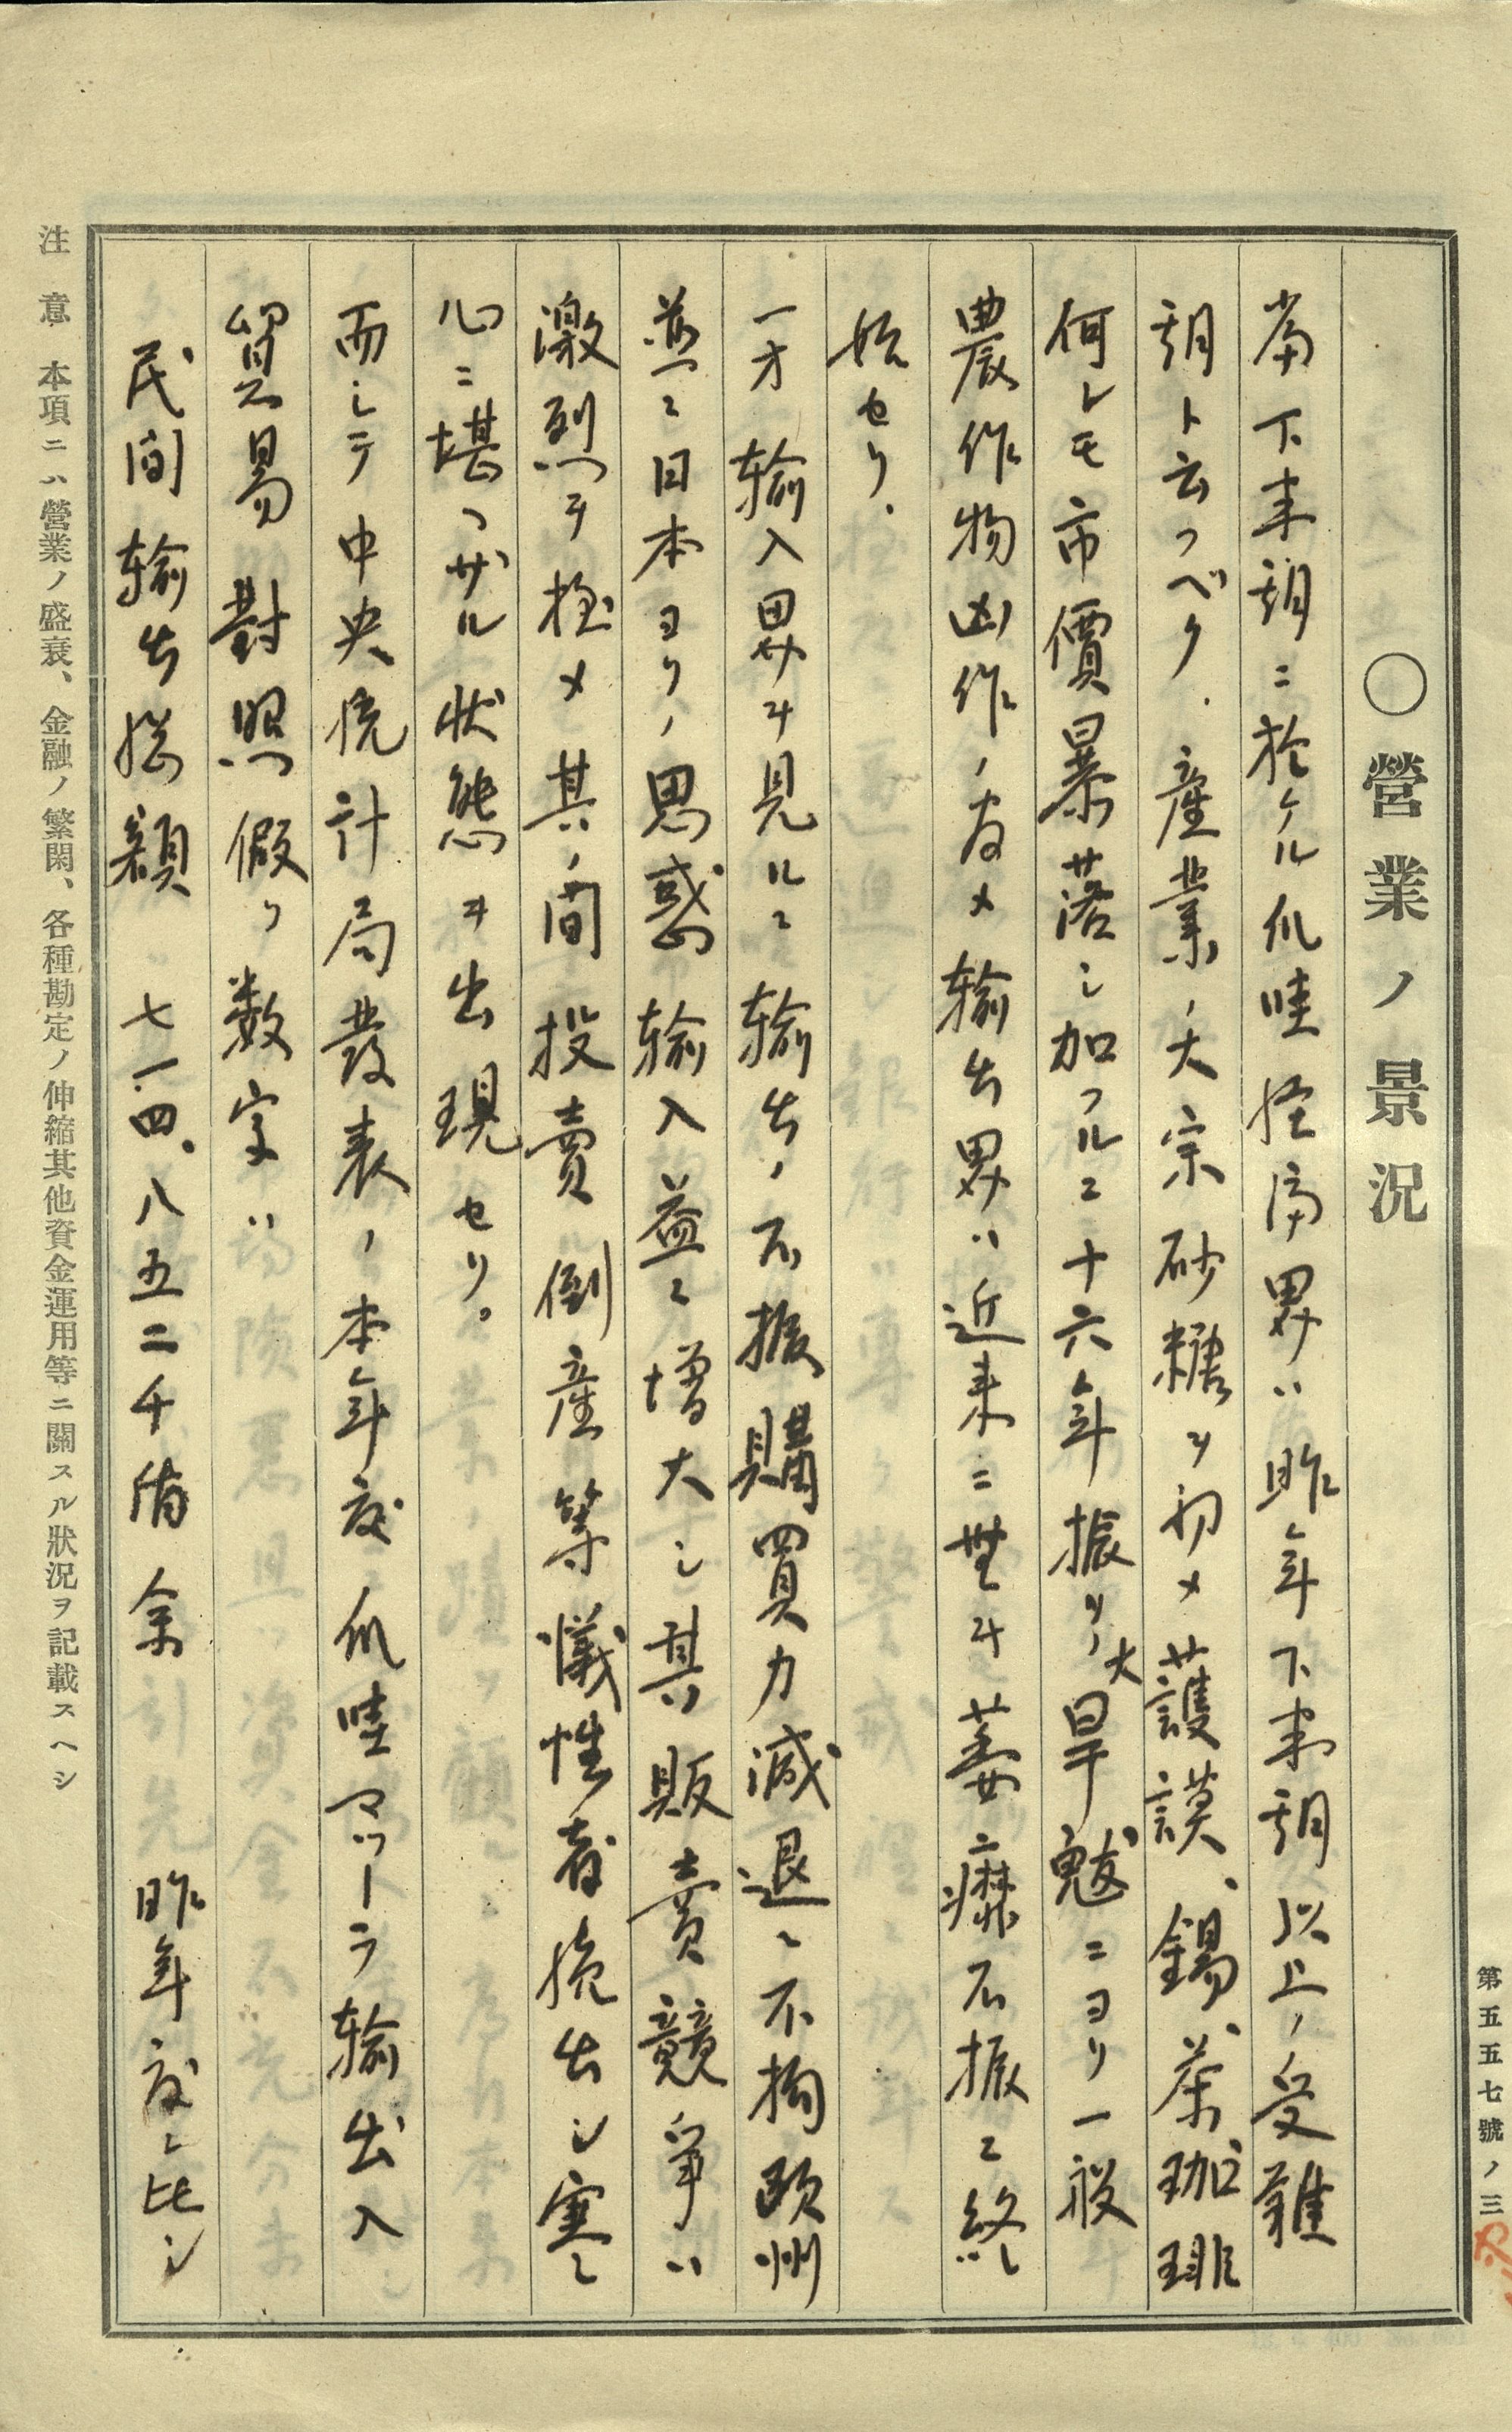 第五五七號ノ三
〇營業ノ景況
當下末期ニ於ケル爪哇経済界ハ昨年下末期以上ノ受難
期ト云フベク、産業ノ大宗砂糖ヲ初メ護謨、錫、茶、珈琲
何レモ市價暴落シ加フルニ十六年振リノ大旱魃ニヨリ一般
農作物凶作ノ為メ輸出界ハ近来ニ無キ萎靡不振ニ終
始セリ、
一方輸入界ヲ見ルニ輸出ノ不振購買力減退ニ不拘欧州
並ニ日本ヨリノ思惑輸入益々増大シ其ノ販賣競争ハ
激烈ヲ極メ其ノ間投賣倒産等犠牲者続出シ寒
心ニ堪ヘザル状態ヲ出現セリ。
而シテ中央統計局發表ノ本年度爪哇マヅーラ輸出入
貿易對照假リ数字ハ
民間輸出総額 七一四、八五二千盾余 昨年度ニ比シ
注意 本項ニハ營業ノ盛衰、金融ノ繁閑、各種勘定ノ伸縮其他資金運用等ニ關スル狀況ヲ記載スヘシ